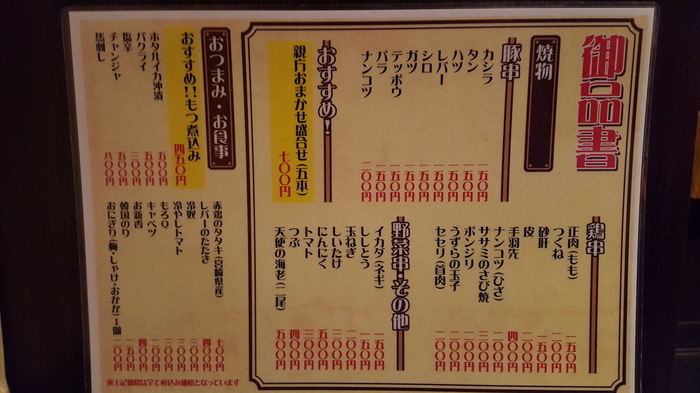 御品書
焼物
豚串
カシラ 一五〇円
タン 一五〇円
ハツ 一五〇円
レバー 一五〇円
シロ 一五〇円
ガツ 一五〇円
テッポウ 一五〇円
バラ 一五〇円
ナンコツ
おすすめ!
親方おまかせ盛合せ(五本) 七〇〇円
鶏串
正肉(もも) 一五〇円
つくね
砂肝 一五〇円
皮
手羽先
ナンコツ(ひざ)
ササミのさび焼 三〇〇円
ボンジリ
うずらの玉子
セセリ(首肉)
野菜串・その他
イカダ(ネギ) 一五〇円
ししとう 一五〇円
玉ねぎ
しいたけ
にんにく 五〇〇円
トマト
つぶ 四〇〇円
天使の海老(二尾) 五〇〇円
おつまみ・お食事
おすすめ!!もつ煮込み 四五〇円
ホタルイカ沖漬 五〇〇円
バクライ 五〇〇円
塩辛 三〇〇円
チャンジャ 五〇〇円
馬刺し 八〇〇円
赤鶏のタタキ(宮崎県産) 七〇〇円
レバーのたたき 四〇〇円
冷奴
冷やしトマト
もろQ
キャベツ
お新香 四〇〇円
韓国のり 一五〇円
おにぎり(梅・しゃけ・おかか)1個
※上記価格は全て税込み価格となっています